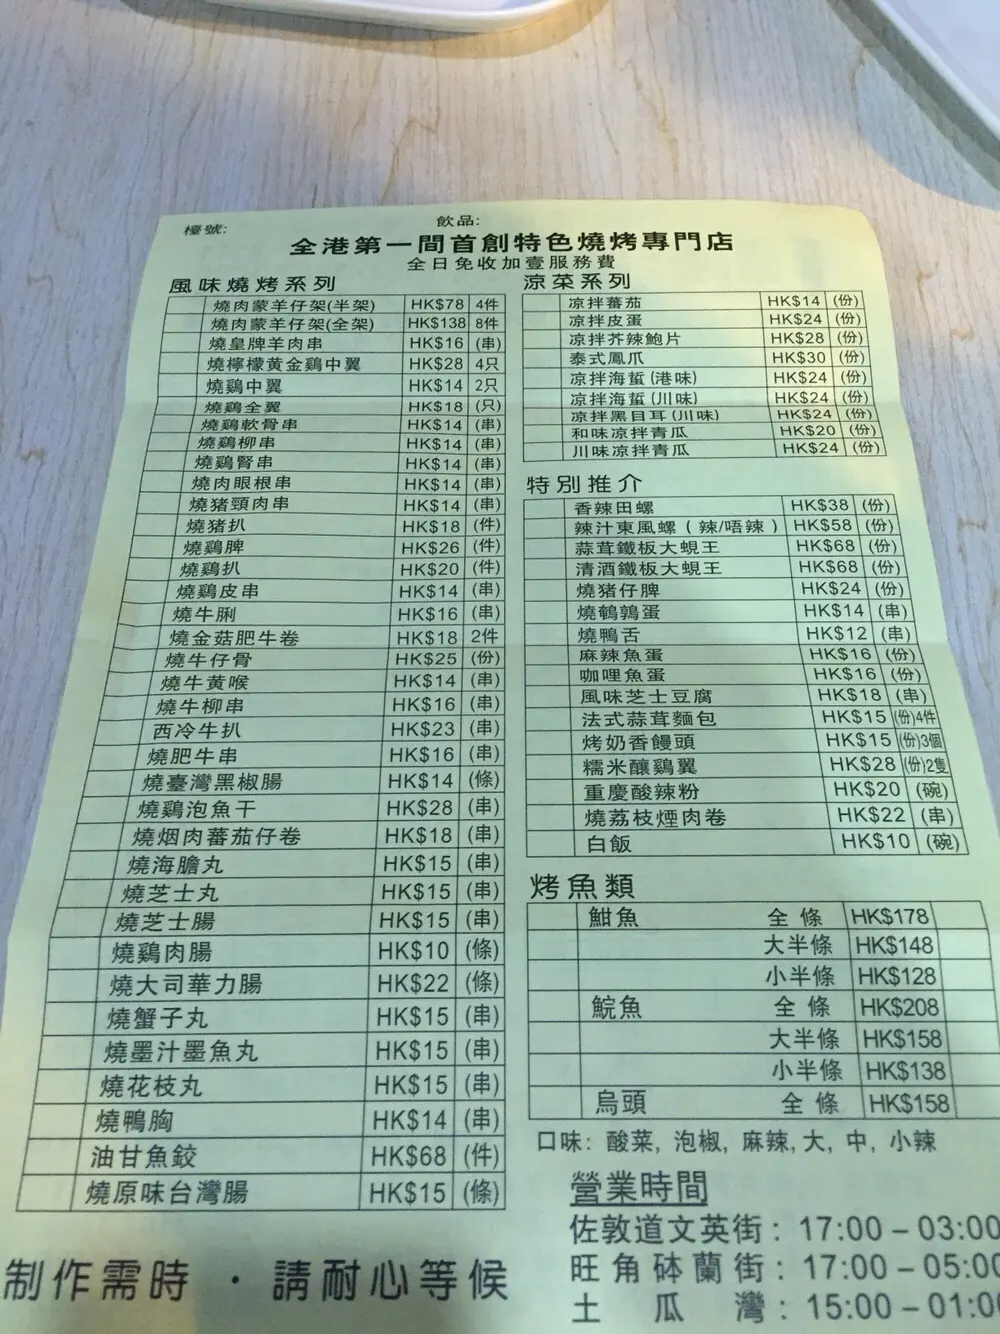 檯號:
飲品:
全港第一間首創特色燒烤專門店
全日免收加壹服務費
風味燒烤系列
燒肉蒙羊仔架(半架) HK$78 4件
燒肉蒙羊仔架(全架) HK$138 8件
燒皇牌羊肉串 HK$16 (串)
燒檸檬黃金鷄中翼 HK$28 4只
燒鷄中翼 HK$14 2只
燒鷄全翼 HK$18 (只)
燒鷄軟骨串 HK$14 (串)
燒鷄柳串 HK$14 (串)
燒鷄腎串 HK$14 (串)
燒肉眼根串 HK$14 (串)
燒猪頸肉串 HK$14 (串)
燒猪扒 HK$18 (件)
燒鷄脾 HK$26 (件)
燒鷄扒 HK$20 (件)
燒鷄皮串 HK$14 (串)
燒牛脷 HK$16 (串)
燒金菇肥牛卷 HK$18 2件
燒牛仔骨 HK$25 (份)
燒牛黃喉 HK$14 (串)
燒牛柳串 HK$16 (串)
西冷牛扒 HK$23 (串)
燒肥牛串 HK$16 (串)
燒臺灣黑椒腸 HK$14 (條)
燒鷄泡魚干 HK$28 (串)
燒烟肉蕃茄仔卷 HK$18 (串)
燒海膽丸 HK$15 (串)
燒芝士丸 HK$15 (串)
燒芝士腸 HK$15 (串)
燒鷄肉腸 HK$10 (條)
燒大司華力腸 HK$22 (條)
燒蟹子丸 HK$15 (串)
燒墨汁墨魚丸 HK$15 (串)
燒花枝丸 HK$15 (串)
燒鴨胸 HK$14 (串)
油甘魚鉸 HK$68 (件)
燒原味台灣腸 HK$15 (條)
制作需時 · 請耐心等候
涼菜系列
凉拌蕃茄 HK$14 (份)
凉拌皮蛋 HK$24 (份)
凉拌芥辣鮑片 HK$28 (份)
泰式鳳爪 HK$30 (份)
凉拌海蜇(港味) HK$24 (份)
凉拌海蜇(川味) HK$24 (份)
凉拌黑目耳(川味) HK$24 (份)
和味凉拌青瓜 HK$20 (份)
川味凉拌青瓜 HK$24 (份)
特別推介
香辣田螺 HK$38 (份)
辣汁東風螺(辣/唔辣) HK$58 (份)
蒜茸鐵板大蜆王 HK$68 (份)
清酒鐵板大蜆王 HK$68 (份)
燒猪仔脾 HK$24 (份)
燒鵪鶉蛋 HK$14 (串)
燒鴨舌 HK$12 (串)
麻辣魚蛋 HK$16 (份)
咖哩魚蛋 HK$16 (份)
風味芝士豆腐 HK$18 (串)
法式蒜茸麵包 HK$15 (份)4件
烤奶香饅頭 HK$15 (份)3個
糯米釀鷄翼 HK$28 (份)2隻
重慶酸辣粉 HK$20 (碗)
燒荔枝煙肉卷 HK$22 (串)
白飯 HK$10 (碗)
烤魚類
鮒魚 全條 HK$178
大半條 HK$148
小半條 HK$128
鯇魚 全條 HK$208
大半條 HK$158
小半條 HK$138
烏頭 全條 HK$158
口味: 酸菜, 泡椒, 麻辣, 大, 中, 小辣
營業時間
佐敦道文英街: 17:00 – 03:00
旺角砵蘭街: 17:00 – 05:00
土瓜灣: 15:00 – 01:00